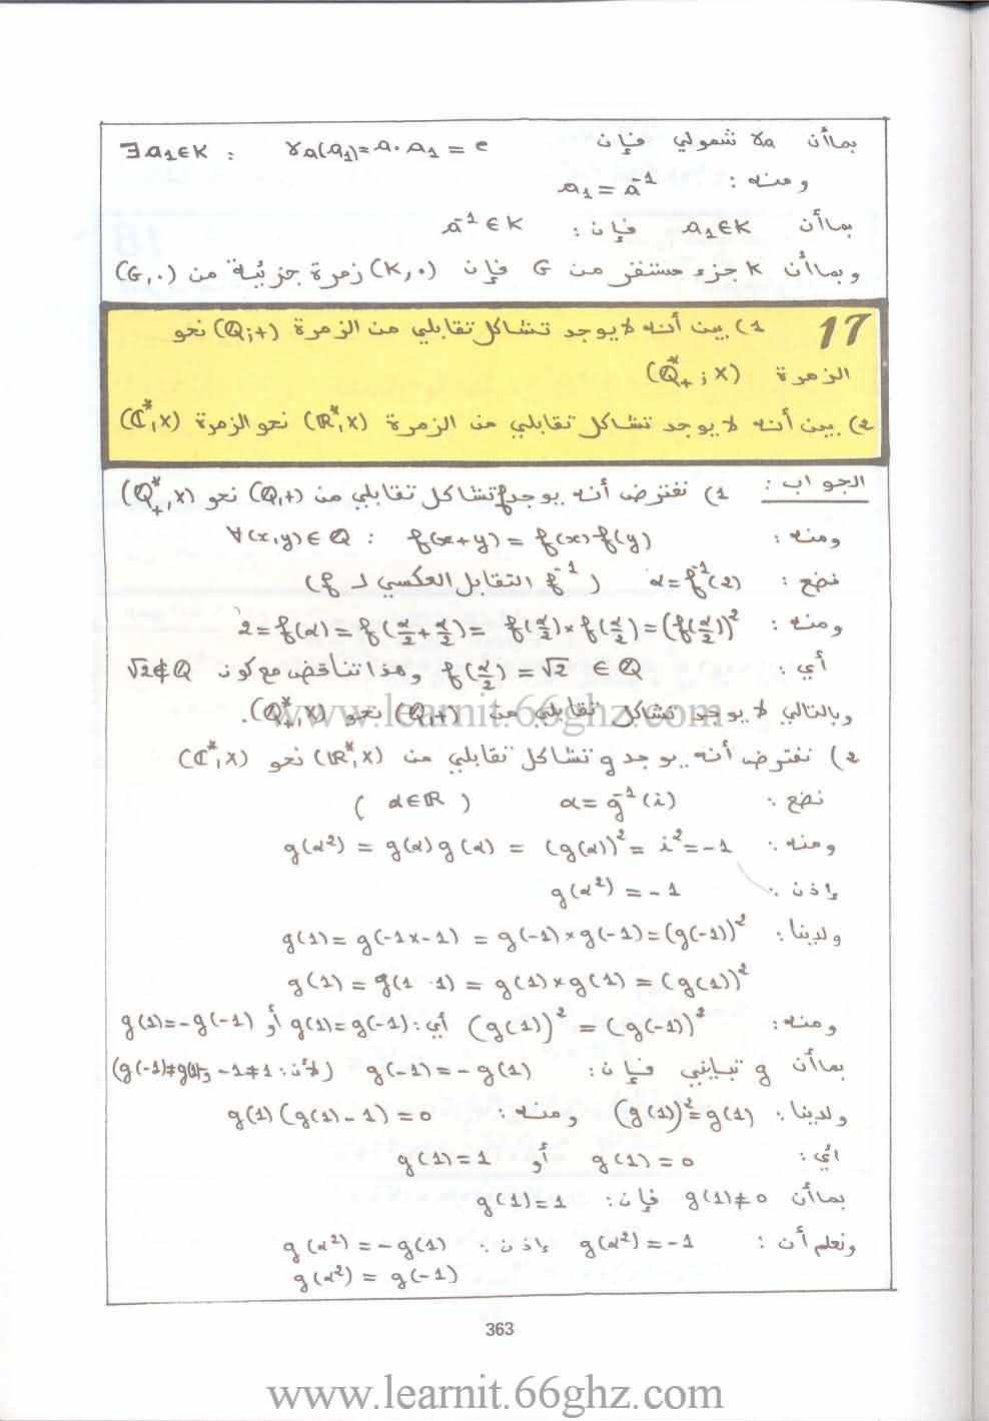 بماأن γa شمولي فإن : ∃a₁∈K : γa(a₁)=a.a₁=e
ومنه : a₁=a⁻¹
بماأن a₁∈K فإن : a⁻¹∈K
وبماأن K جزء مستقر من G فإن (K,.) زمرة جزئية من (G,.)
17 1) بين أنه لا يوجد تشاكل تقابلي من الزمرة (Q;+) نحو
الزمرة (Q*₊;×)
2) بين أنه لا يوجد تشاكل تقابلي من الزمرة (R*,×) نحو الزمرة (C*,×)
الجواب : 1) نفترض أنه يوجد f تشاكل تقابلي من (Q,+) نحو (Q*₊,×)
ومنه : ∀(x,y)∈Q : f(x+y)=f(x)f(y)
نضع : α=f⁻¹(2) (f⁻¹ التقابل العكسي ل f)
ومنه : 2=f(α)=f(α/2+α/2)=f(α/2)×f(α/2)=(f(α/2))²
أي : f(α/2)=√2 ∈Q وهذا تناقض مع كون √2∉Q
وبالتالي لا يوجد تشاكل تقابلي من (Q,+) نحو (Q*₊,×).
2) نفترض أنه يوجد g تشاكل تقابلي من (R*,×) نحو (C*,×)
نضع : α=g⁻¹(i) (α∈R)
ومنه : g(α²)=g(α)g(α)=(g(α))²=i²=-1
إذن : g(α²)=-1
ولدينا : g(1)=g(-1×-1)=g(-1)×g(-1)=(g(-1))²
g(1)=g(1 · 1)=g(1)×g(1)=(g(1))²
ومنه : (g(1))²=(g(-1))² أي : g(1)=g(-1) أو g(1)=-g(-1)
بماأن g تبايني فإن : g(-1)=-g(1) (لأن : -1≠1 و g(-1)≠g(1))
ولدينا : (g(1))²=g(1) ومنه : g(1)(g(1)-1)=0
أي : g(1)=0 أو g(1)=1
بماأن g(1)≠0 فإن : g(1)=1
ونعلم أن : g(α²)=-1 إذن : g(α²)=-g(1)
g(α²)=g(-1)
363
www.learnit.66ghz.com
www.learnit.66ghz.com